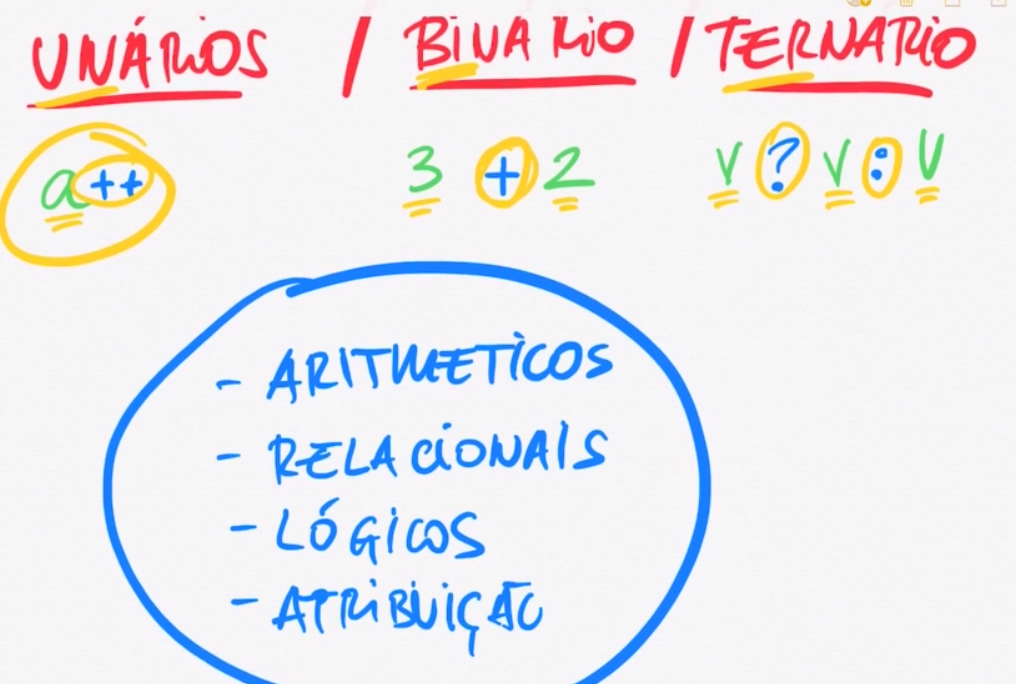 UNÁRIOS / BINARIO / TERNARIO
a++ 3 + 2 V ? V : V
- ARITMETICOS
- RELACIONAIS
- LÓGICOS
- ATRIBUIÇÃO